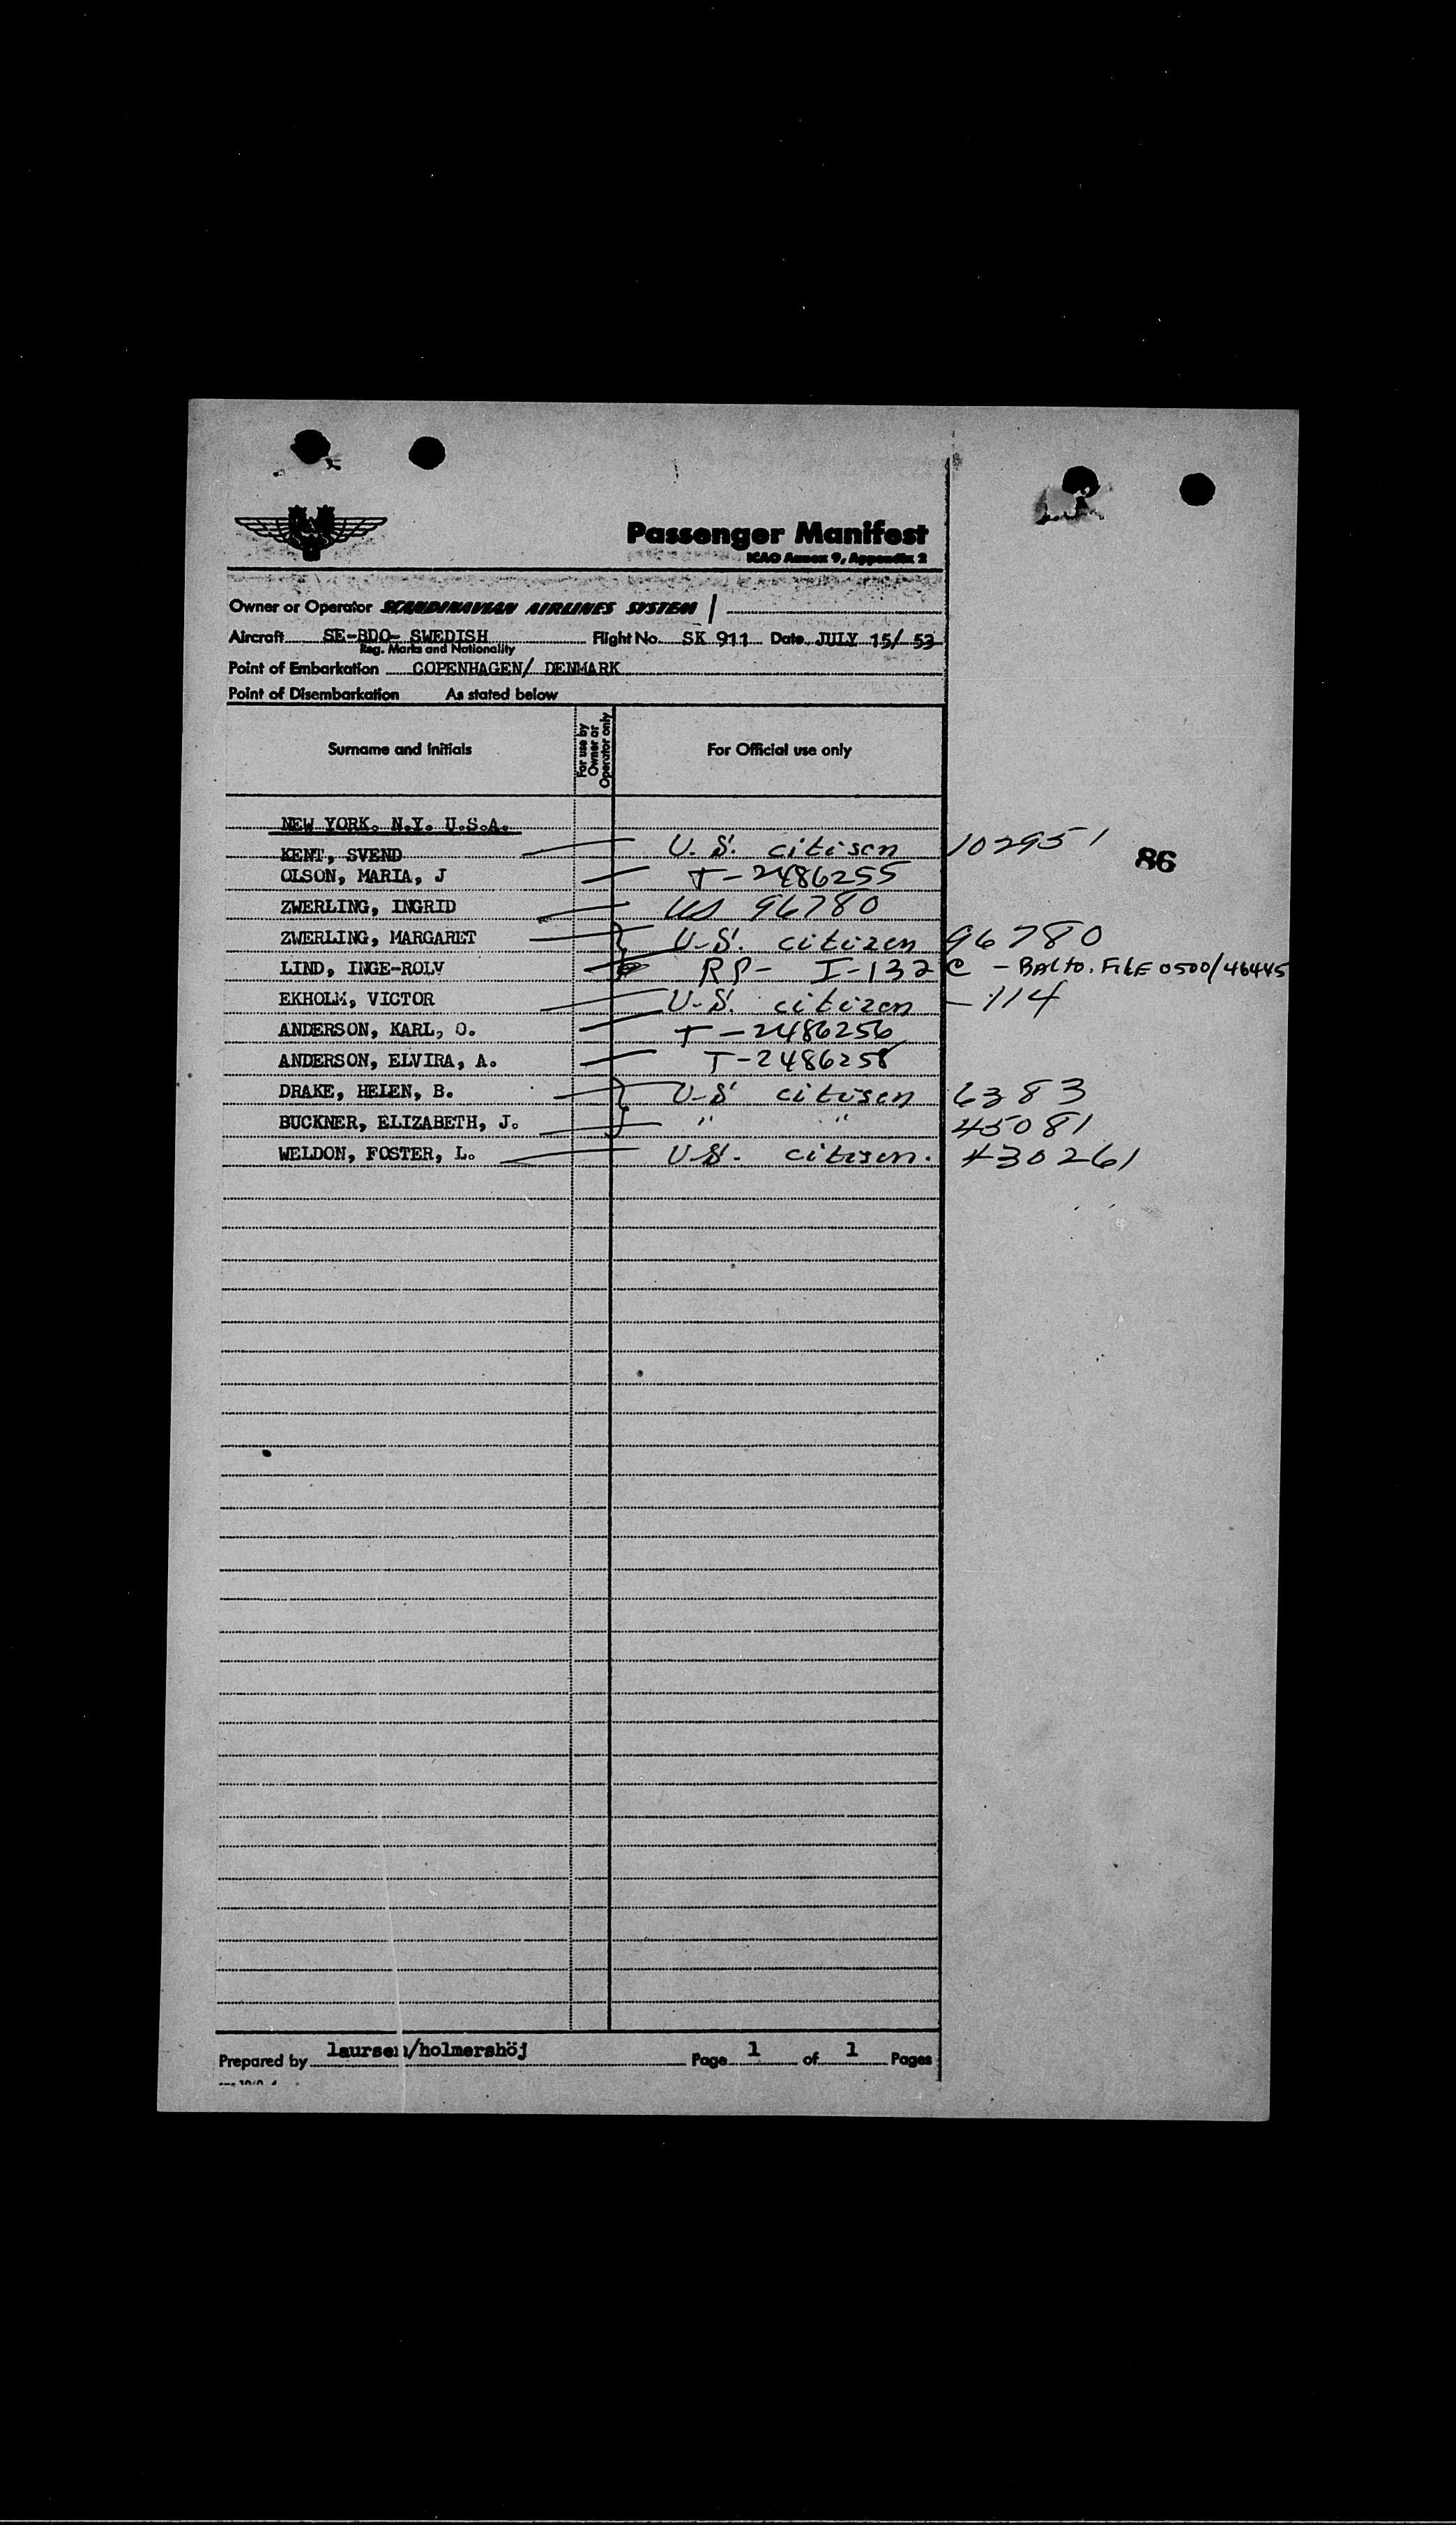 Passenger Manifest
ICAO Annex 9, Appendix 2
Owner or Operator SCANDINAVIAN AIRLINES SYSTEM /
Aircraft SE-BDO- SWEDISH Flight No. SK 911 Date JULY 15/ 53
Reg. Marks and Nationality
Point of Embarkation COPENHAGEN/ DENMARK
Point of Disembarkation As stated below
Surname and initials For use by Owner or Operator only For Official use only
NEW YORK. N.Y. U.S.A.
KENT, SVEND U.S. citizen 102951
86
OLSON, MARIA, J T-2486255
ZWERLING, INGRID US 96780
ZWERLING, MARGARET U.S. citizen 96780
LIND, INGE-ROLV RP- I-132 C - BALTO. FILE 0500/46445
EKHOLM, VICTOR U.S. citizen -114
ANDERSON, KARL, O. T-2486256
ANDERSON, ELVIRA, A. T-2486258
DRAKE, HELEN, B. U.S citizen 6383
BUCKNER, ELIZABETH, J. " " 45081
WELDON, FOSTER, L. U.S. citizen. 430261
Prepared by laursen/holmershöj Page 1 of 1 Pages